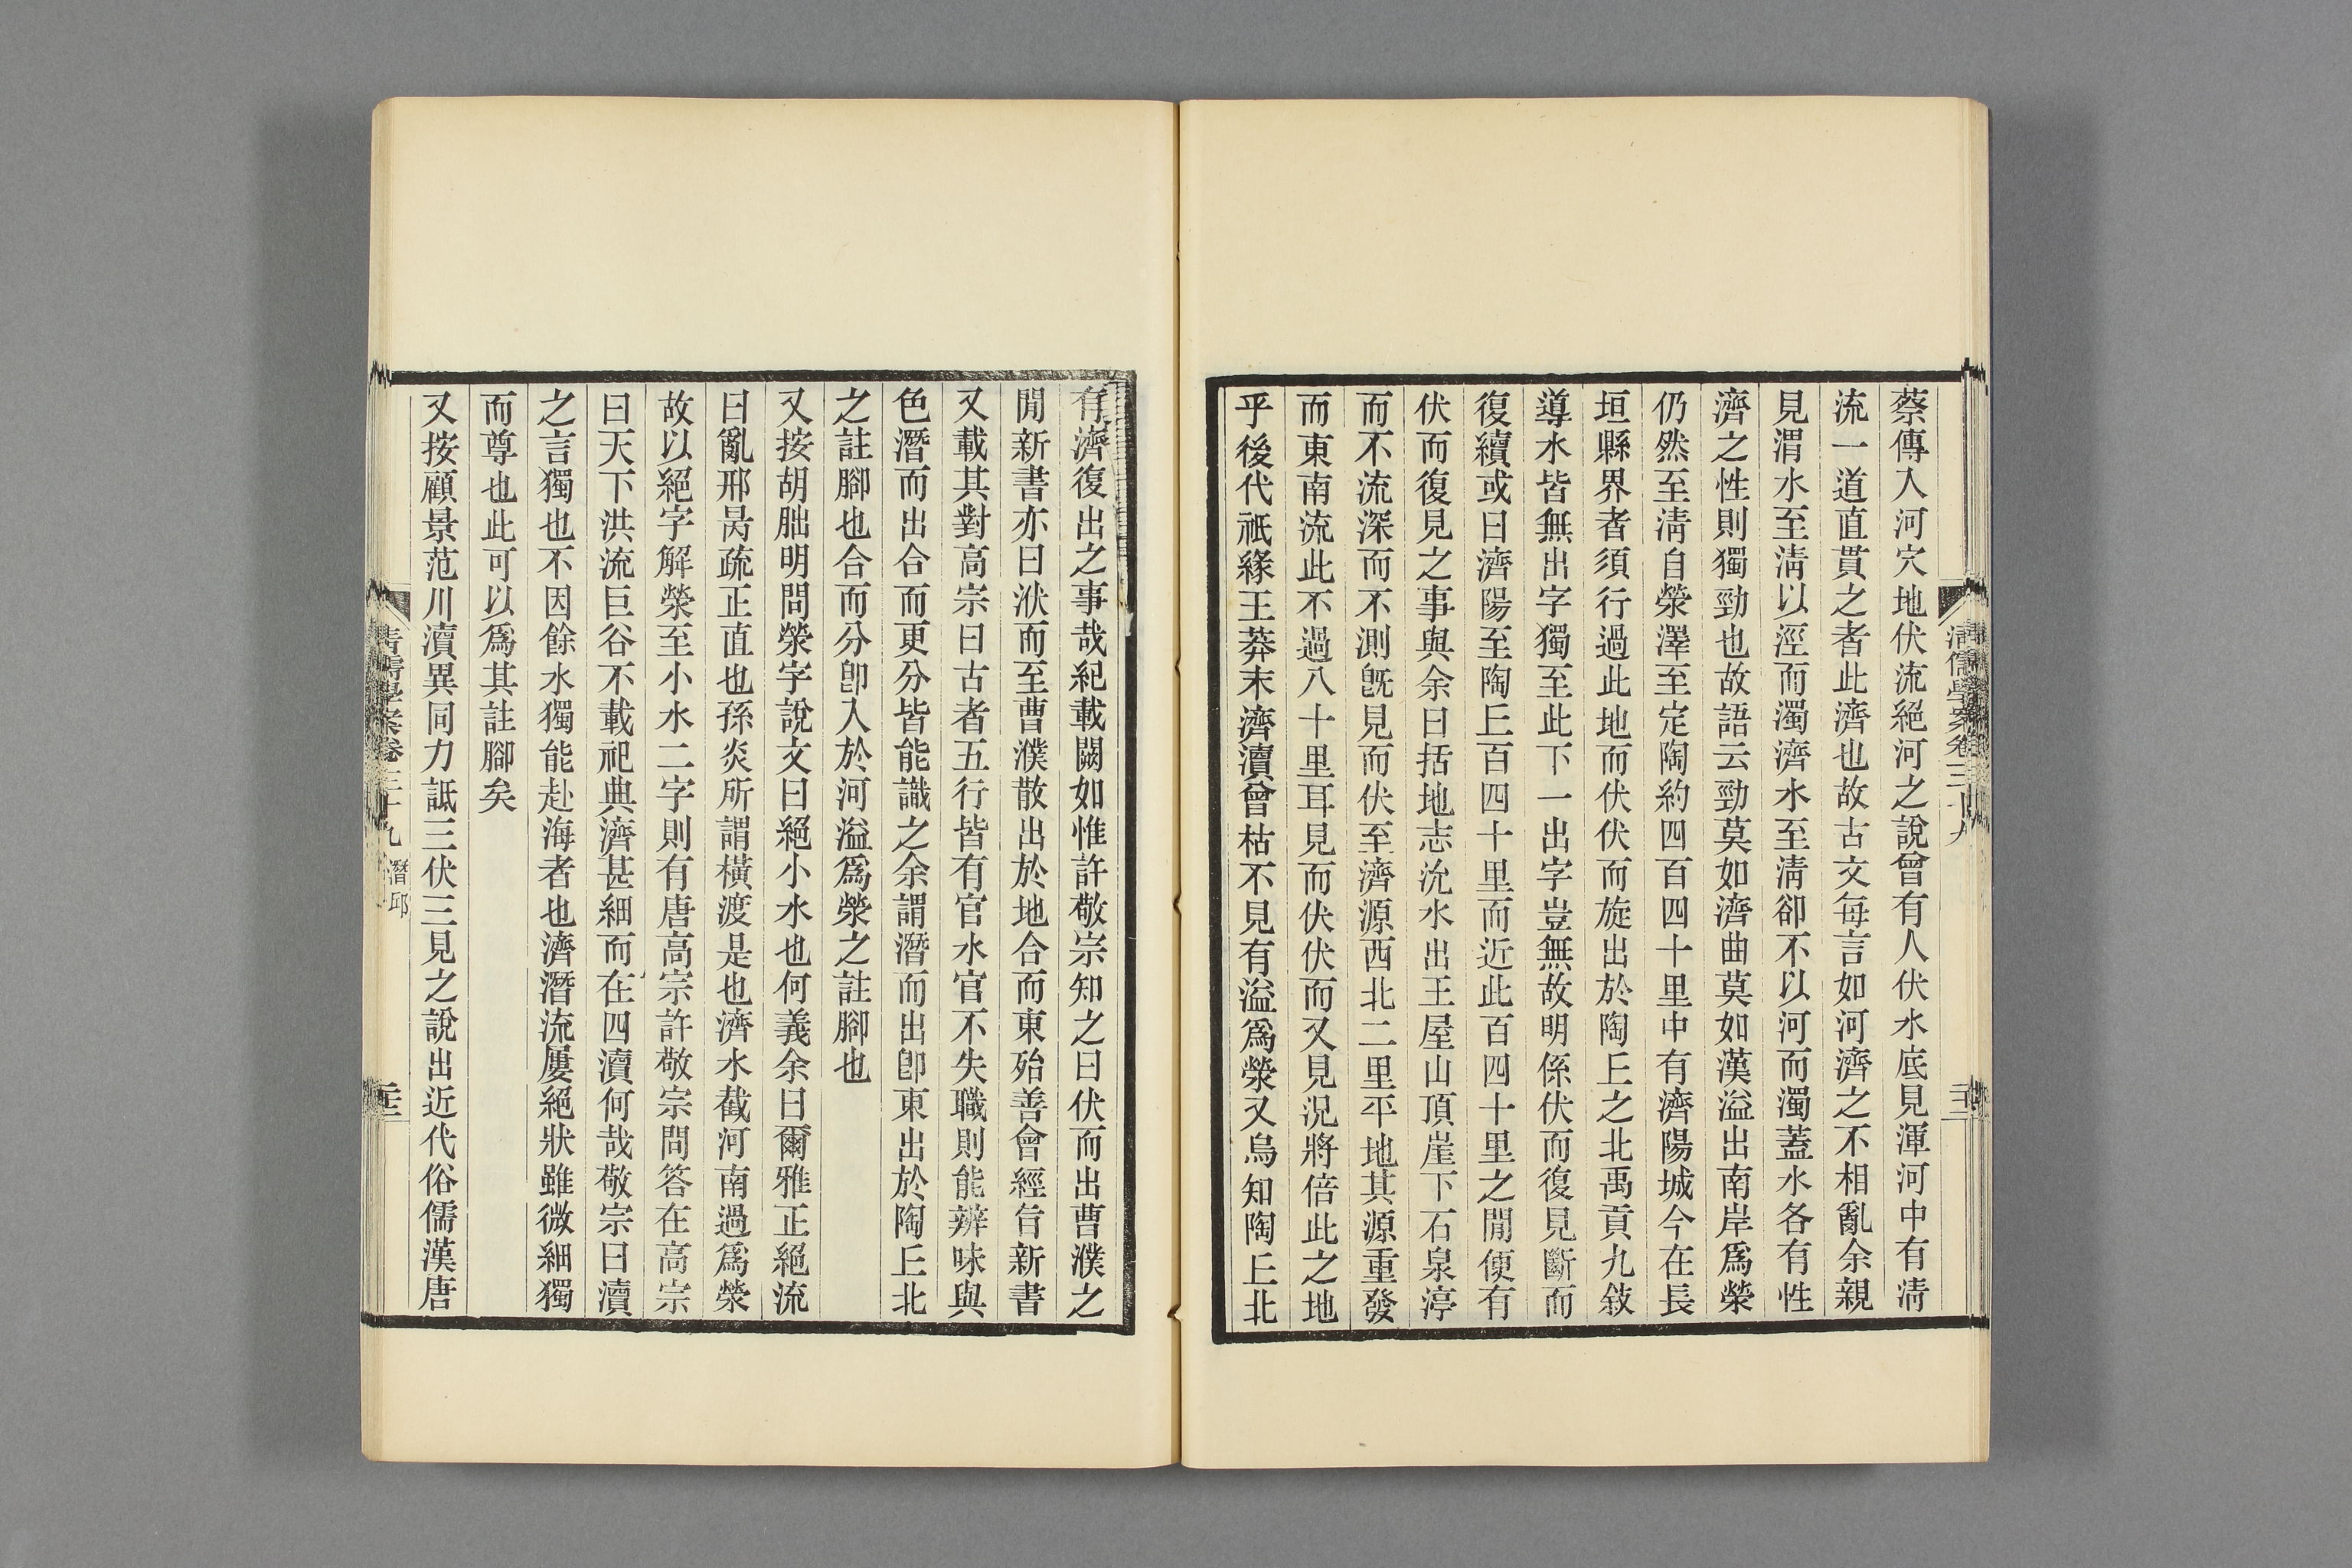 蔡傳入河穴地伏流絕河之說曾有人伏水底見渾河中有淸
流一道直貫之者此濟也故古文每言如河濟之不相亂余親
見渭水至淸以涇而濁濟水至淸卻不以河而濁蓋水各有性
濟之性則獨勁也故語云勁莫如濟曲莫如漢溢出南岸爲滎
仍然至淸自滎澤至定陶約四百四十里中有濟陽城今在長
垣縣界者須行過此地而伏伏而旋出於陶丘之北禹貢九敍
導水皆無出字獨至此下一出字豈無故明係伏而復見斷而
復續或曰濟陽至陶丘百四十里而近此百四十里之閒便有
伏而復見之事與余曰括地志沇水出王屋山頂崖下石泉渟
而不流深而不測旣見而伏至濟源西北二里平地其源重發
而東南流此不過八十里耳見而伏伏而又見況將倍此之地
乎後代祇緣王莽末濟瀆曾枯不見有溢爲滎又烏知陶丘北
淸儒學案卷三十九
有濟復出之事哉紀載闕如惟許敬宗知之曰伏而出曹濮之
閒新書亦曰洑而至曹濮散出於地合而東殆善會經旨新書
又載其對高宗曰古者五行皆有官水官不失職則能辨味與
色潛而出合而更分皆能識之余謂潛而出卽東出於陶丘北
之註腳也合而分卽入於河溢爲滎之註腳也
又按胡朏明問滎字說文曰絕小水也何義余曰爾雅正絕流
曰亂邢昺疏正直也孫炎所謂橫渡是也濟水截河南過爲滎
故以絕字解滎至小水二字則有唐高宗許敬宗問答在高宗
曰天下洪流巨谷不載祀典濟甚細而在四瀆何哉敬宗曰瀆
之言獨也不因餘水獨能赴海者也濟潛流屢絕狀雖微細獨
而尊也此可以爲其註腳矣
又按顧景范川瀆異同力詆三伏三見之說出近代俗儒漢唐
淸儒學案卷三十九 潛邱